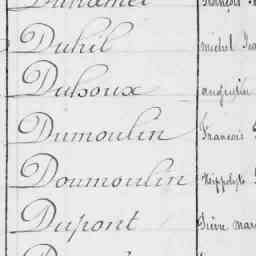 Duhamel François
Duhil michel
Dulsoux augustin
Dumoulin François
Doumoulin hippolyte
Dupont Pierre mar